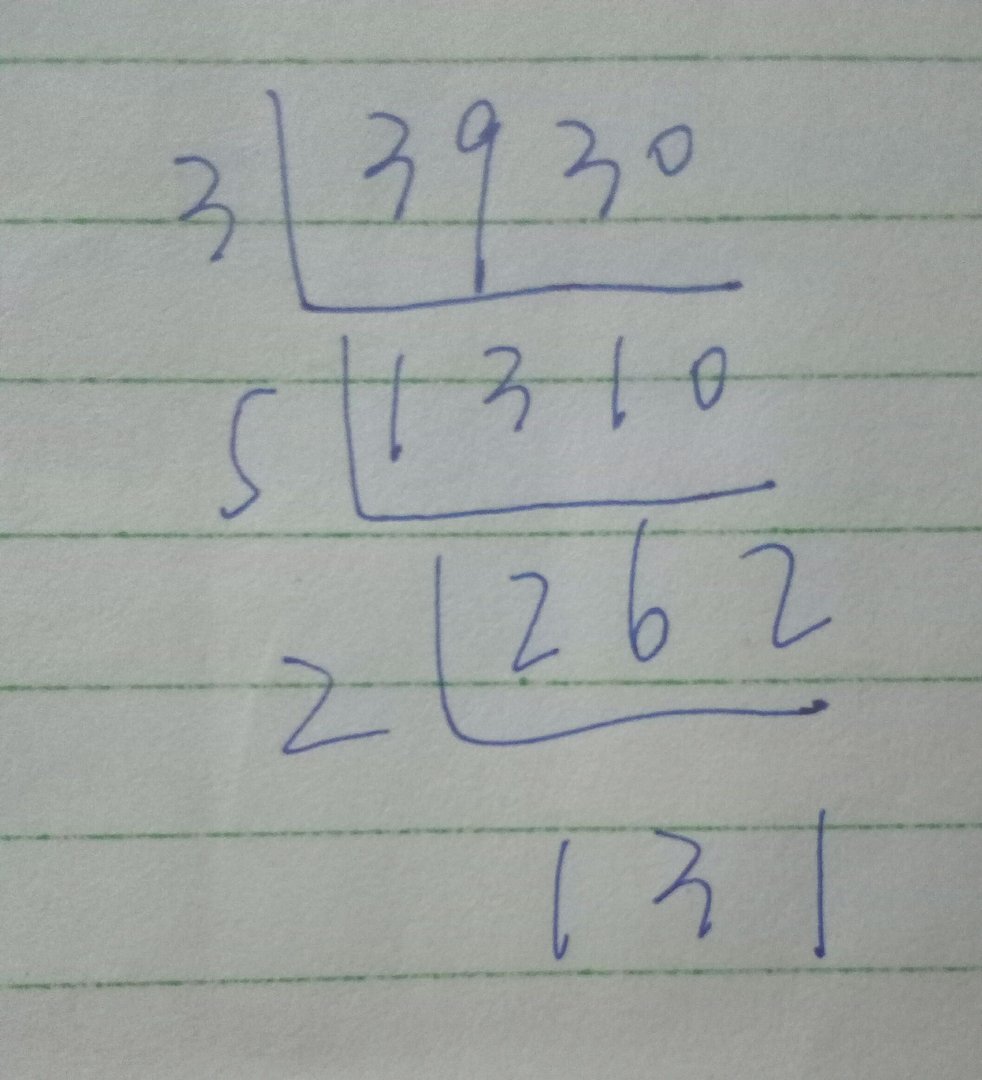 3 3930
5 1310
2 262
131